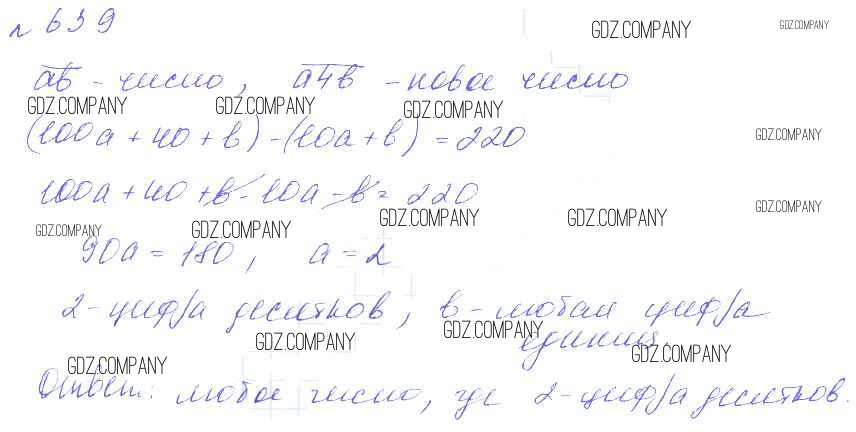 № 639 GDZ.COMPANY GDZ.COMPANY
ab - число, a4b - новое число
GDZ.COMPANY GDZ.COMPANY GDZ.COMPANY
(100a + 40 + b) - (10a + b) = 220 GDZ.COMPANY
100a + 40 + b - 10a - b = 220
GDZ.COMPANY GDZ.COMPANY GDZ.COMPANY GDZ.COMPANY GDZ.COMPANY
90a = 180, a = 2
2 - цифра десятков, b - любая цифра
GDZ.COMPANY GDZ.COMPANY единиц.
GDZ.COMPANY GDZ.COMPANY
Ответ: любое число, где 2 - цифра десятков.